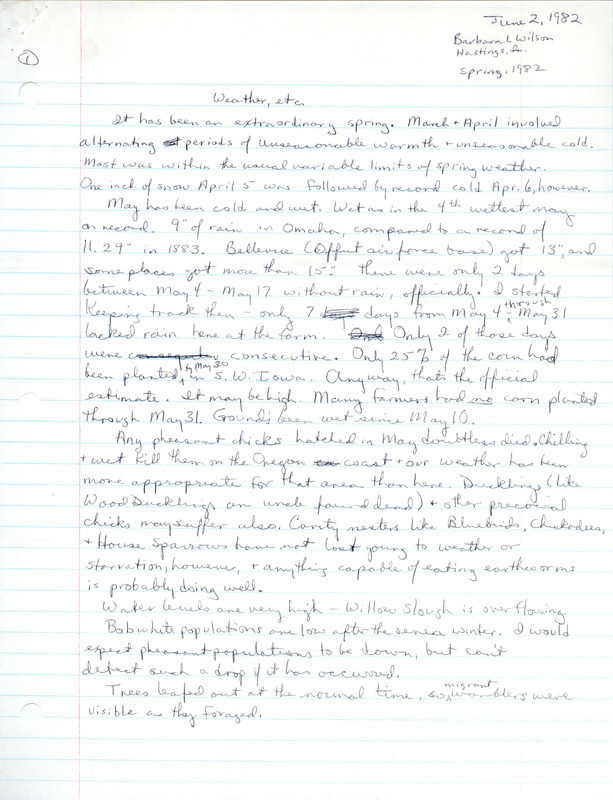 June 2, 1982
①
Barbara L Wilson
Hastings, Ia.
Spring, 1982
Weather, etc.
It has been an extraordinary spring. March + April involved
alternating periods of unseasonable warmth + unseasonable cold.
Most was within the usual variable limits of spring weather.
One inch of snow April 5 was followed by record cold Apr. 6, however.
May has been cold and wet. Wet as in the 4th wettest may
on record. 9" of rain in Omaha, compared to a record of
11.29" in 1883. Bellevue (Offut air force base) got 13", and
some places got more than 15". There were only 2 days
between May 4 - May 17 without rain, officially. I started
Keeping track then - only 7 days from May 4 through May 31
lacked rain here at the farm. Only 2 of those days
were consecutive. Only 25% of the corn had
been planted by May 30 in S.W. Iowa. Anyway, thats the official
estimate. It may be high. Many farmers had no corn planted
through May 31. Ground's been wet since May 10.
Any pheasant chicks hatched in May doubtless died. Chilling
+ wet kill them on the Oregon coast + our weather has been
more appropriate for that area than here. Ducklings (like
Wood Ducklings an uncle found dead) + other precocial
chicks may suffer also. Cavity nesters like Bluebirds, Chickadees,
+ House Sparrows have not lost young to weather or
starvation, however, + anything capable of eating earthworms
is probably doing well.
Water levels are very high - Willow Slough is overflowing.
Bobwhite populations are low after the severe winter. I would
expect pheasant populations to be down, but can't
detect such a drop if it has occurred.
Trees leafed out at the normal time, so migrant warblers were
visible as they foraged.